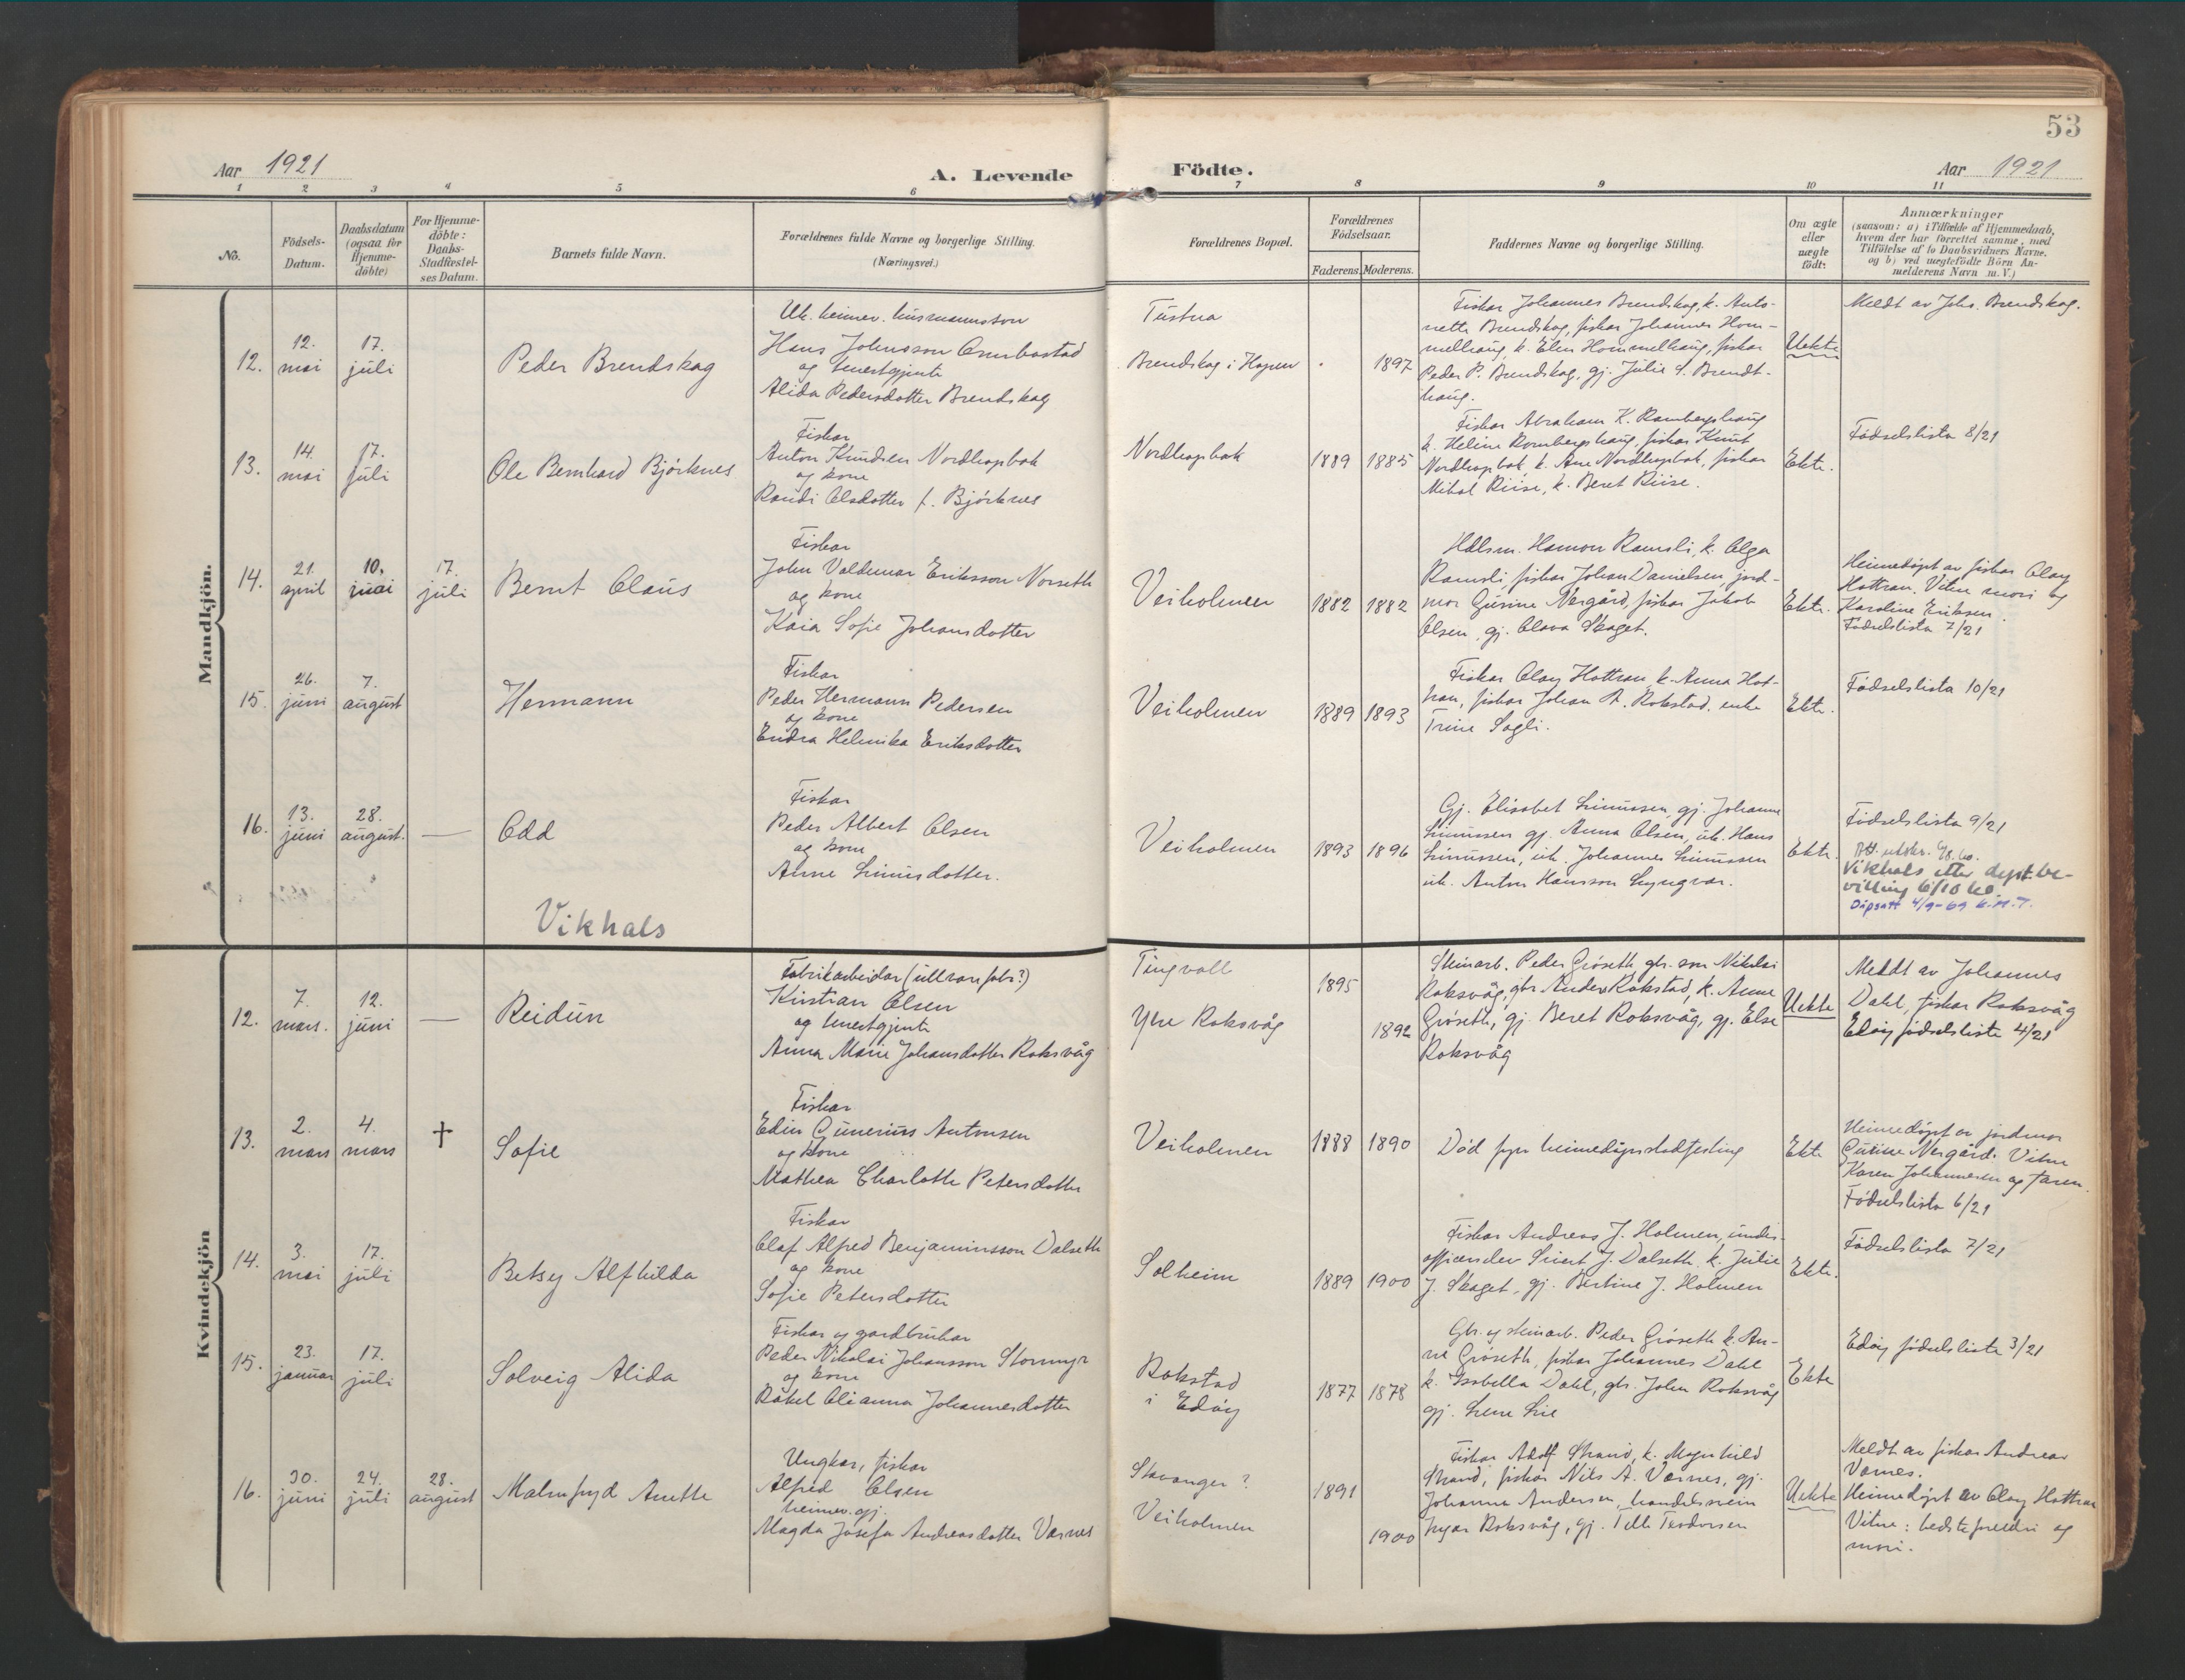 53
Aar 1921
A. Levende Födte.
Aar 1921
1 2 3 4 5 6 7 8 9 10 11
No.
Födsels-
Datum.
Daabsdatum
(ogsaa for
Hjemme-
döbte)
For Hjemme-
döbte:
Daabs-
Stadfæstel-
ses Datum.
Barnets fulde Navn.
Forældrenes fulde Navne og borgerlige Stilling.
(Næringsvei.)
Forældrenes Bopæl.
Forældrenes
Födselsaar.
Faderens. Moderens.
Faddernes Navne og borgerlige Stilling.
Om ægte
eller
uægte
födt:
Anmærkninger
(saasom: a) i Tilfælde af Hjemmedaab,
hvem der har forrettet samme, med
Tilföielse af to Daabsvidners Navne.
og b) ved uægtefödte Börn An-
melderens Navn m. V.)
Mandkjön.
12.
12.
mai
17.
juli
Peder Brendskag
Uk. heimev. husmannsson
Hans Johnsson
og tenestgjente
Alida Pedersdotter Brendskag
Tustna
Brendskag i Hopen
1897
Fiskar Johannes Brendskag, k. Anto-
nette Brendskag, fiskar Johannes Hom-
melhaug, k. Elen Hommelhaug, fiskar
Peder P. Brendskag, gj. Julie S. Brendt-
haug.
Uekte
Meldt av Johs. Brendskag.
13.
14.
mai
17.
juli
Ole Bernhard Bjórknes
Fiskar
Anton Knudsen Nordhopbak
og kone
Randi Olsdotter f. Bjórknes
Nordhopbak
1889 1885
Fiskar Abraham K. Rambergshaug
k. Heline Rambergshaug, fiskar Knut
Nordhopbak, k. Ane Nordhopbak, fiskar
Mikal Riise, k. Beret Riise.
Ekte.
Fódselslista 8/21
14.
21.
april
10.
juni
17.
juli
Bernt Claus
Fiskar
John Valdemar Eriksson Norseth
og kone
Kaia Sofie Johansdotter
Veiholmen
1882 1882
Hdlsm. Hamon Ramsli, k. Olga
Ramsli fiskar Johan Danielsen, jord-
mor Gurine Nergård, fiskar Jakob
Olsen, gj. Olava Skaget.
Ekte.
Heimedøpt av fiskar Olay
Hottran. Vitne mori og
Karoline Eriksen.
Fódselslista 7/21
15.
26.
juni
7.
august
Hermann
Fiskar
Peder Hermann Pedersen
og kone
Endra Helmika Eriksdotter
Veiholmen
1889 1893
Fiskar Olay Hottran k. Anna Hot-
tran, fiskar Johan A. Rokstad, enke
Trine Sagli.
Ekte.
Fódselslista 10/21
16.
13.
juni
28.
august.
Odd
Fiskar
Peder Albert Olsen
og kone
Anne Linusdotter.
Vikhals
Veiholmen
1893 1896
Gj. Elisabet Linussen, gj. Johanne
Linussen gj. Anna Olsen, uk. Hans
Linussen, uk. Johannes Linussen
uk. Anton Hansson Lyngvær.
Ekte.
Fódselslista 9/21
Att. utskr.
Vikhals etter dept. be-
villing 6/10 60.
Dåpsatt 4/9-69
Kvindekjön
12.
7.
mars.
12.
juni
Reidun
Fabrikarbeidar (ullvarefabr?)
Kristian Olsen
og tenestgjente
Anna Marie Johansdotter Roksvåg
Tingvoll
Ytre Roksvåg
1895
1892
Steinarb. Peder Gróseth, gbr. son Nikolai
Roksvåg, gbr. Anders Rokstad, k. Anne
Gróseth, gj. Beret Roksvåg, gj. Else
Roksvåg
Uekte
Meldt av Johannes
Dahl, fiskar Roksvåg
Edóy fódselsliste 4/21
13.
2.
mars
4.
mars
†
Sofie
Fiskar
Edin Gunerius Antonsen
og kone
Mathea Charlotte Petersdotter
Veiholmen
1888 1890
Ód fyr heimedåpsstadfesting
Ekte
Heimedøpt av jordmor
Gurine Nergård. Vitne
Karen Johannesen og faren.
Fódselslista 6/21
14.
3.
mai
17.
juli
Betsy Alfhilda
Fiskar
Olaf Alfred Benjaminsson Dalseth
og kone
Sofie Petersdotter
Solheim
1889 1900
Fiskar Andreas J. Holmen, under-
offiserselev Sivert J. Dalseth, k. Julie
J. Skaget, gj. Bertine J. Holmen
Ekte.
Fódselslista 7/21
15.
23.
januar
17.
juli
Solveig Alida
Fiskar og gardbrukar
Peder Nikolai Johansson Stormyr
og kone
Rakel Oleanna Johannesdotter
Rokstad
i Edóy
1877 1878
Gbr. og steinarb. Peder Gróseth k. An-
ne Gróseth, fiskar Johannes Dahl
k. Isabella Dahl, gbr. John Roksvåg
gj. Lene Lie
Ekte
Edóy fódselsliste 3/21
16.
30.
juni
24.
juli
28.
august
Malmfryd Anette
Ungkar, fiskar
Alfred Olsen
heimev. gj.
Magda Josefa Andreasdotter Værnes
Stavanger?
Veiholmen
1891
1900
Fiskar Adolf Strand, k. Magnhild
Strand, fiskar Nils A. Værnes, gj.
Johanna Andersen, handelsmein
Ingar Roksvåg, gj. Tilli Teodorsen
Uekte
Meldt av fiskar Andreas
Værnes.
Heimedøpt av Olay Hottran
Vitne: besteforeldri og
mori.